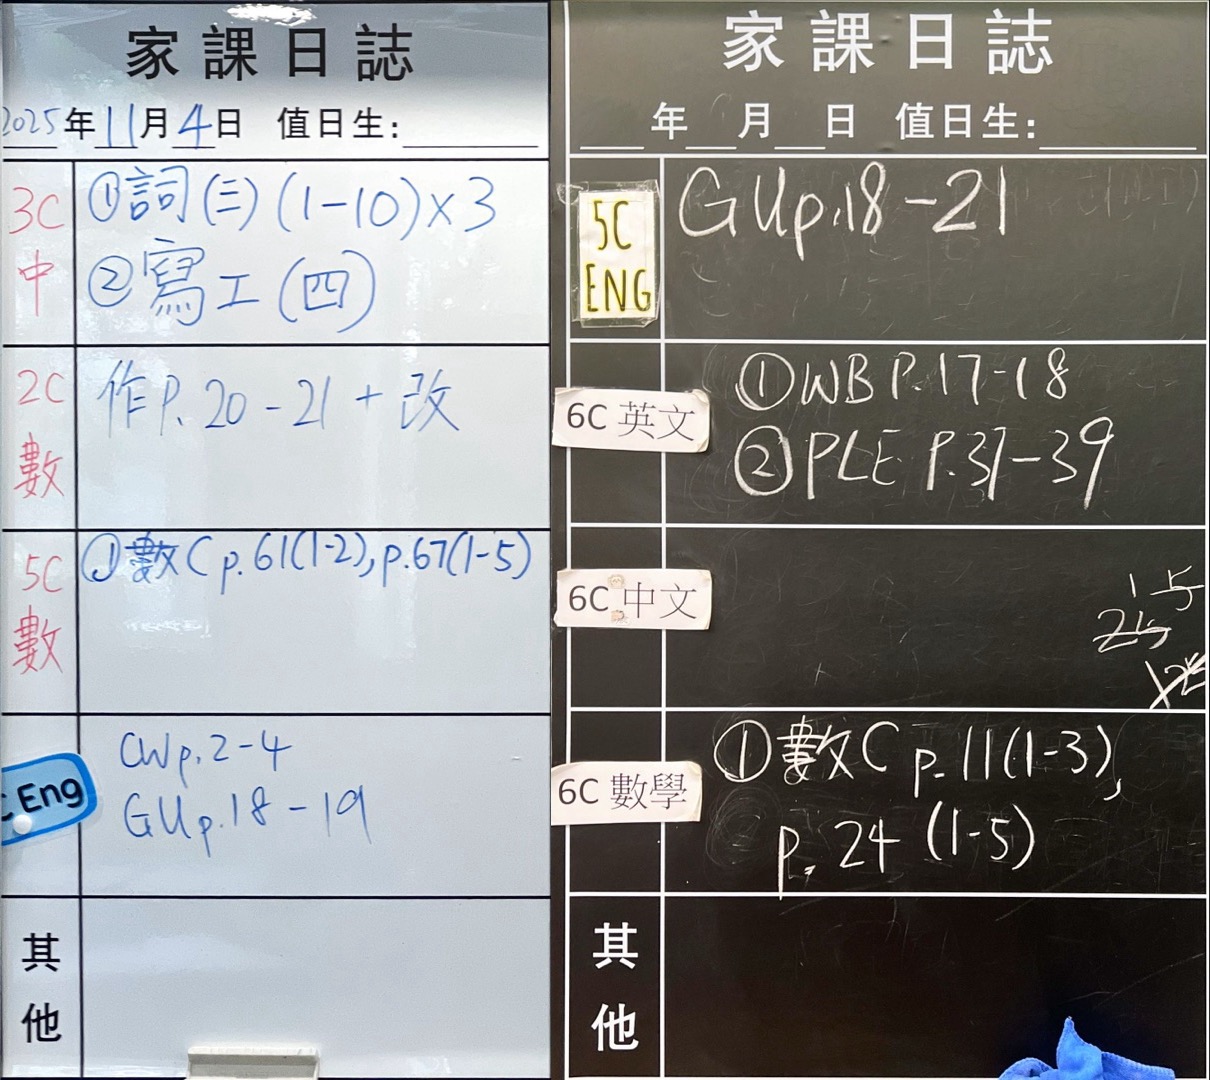 家課日誌
2025年11月4日 值日生:
3C
中
①詞(三)(1-10)×3
②寫工(四)
2C
數
作P.20-21+改
5C
數
①數C p.61(1-2),p.67(1-5)
C Eng
CWp.2-4
GUp.18-19
其
他
家課日誌
年 月 日 值日生:
5C
ENG
GUp.18-21
6C 英文
①WB P.17-18
②PLE P.37-39
6C 中文
1 5
25
6C 數學
①數C p.11(1-3),
p.24 (1-5)
其
他